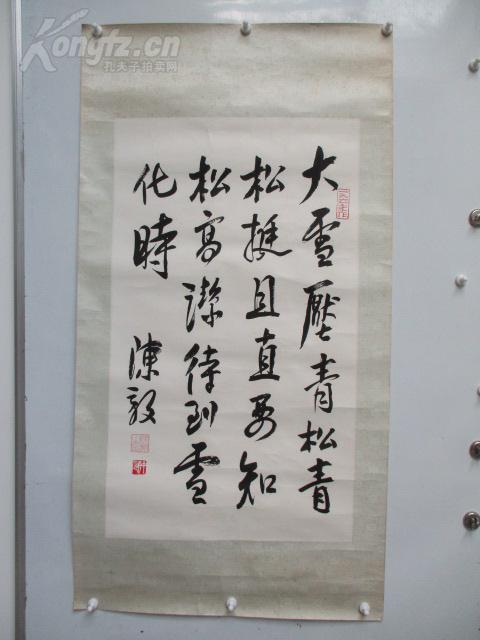 Kongfz.cn
孔夫子拍卖网
大雪壓青松青
松挺且直要知
松高潔待到雪
化時
陳毅